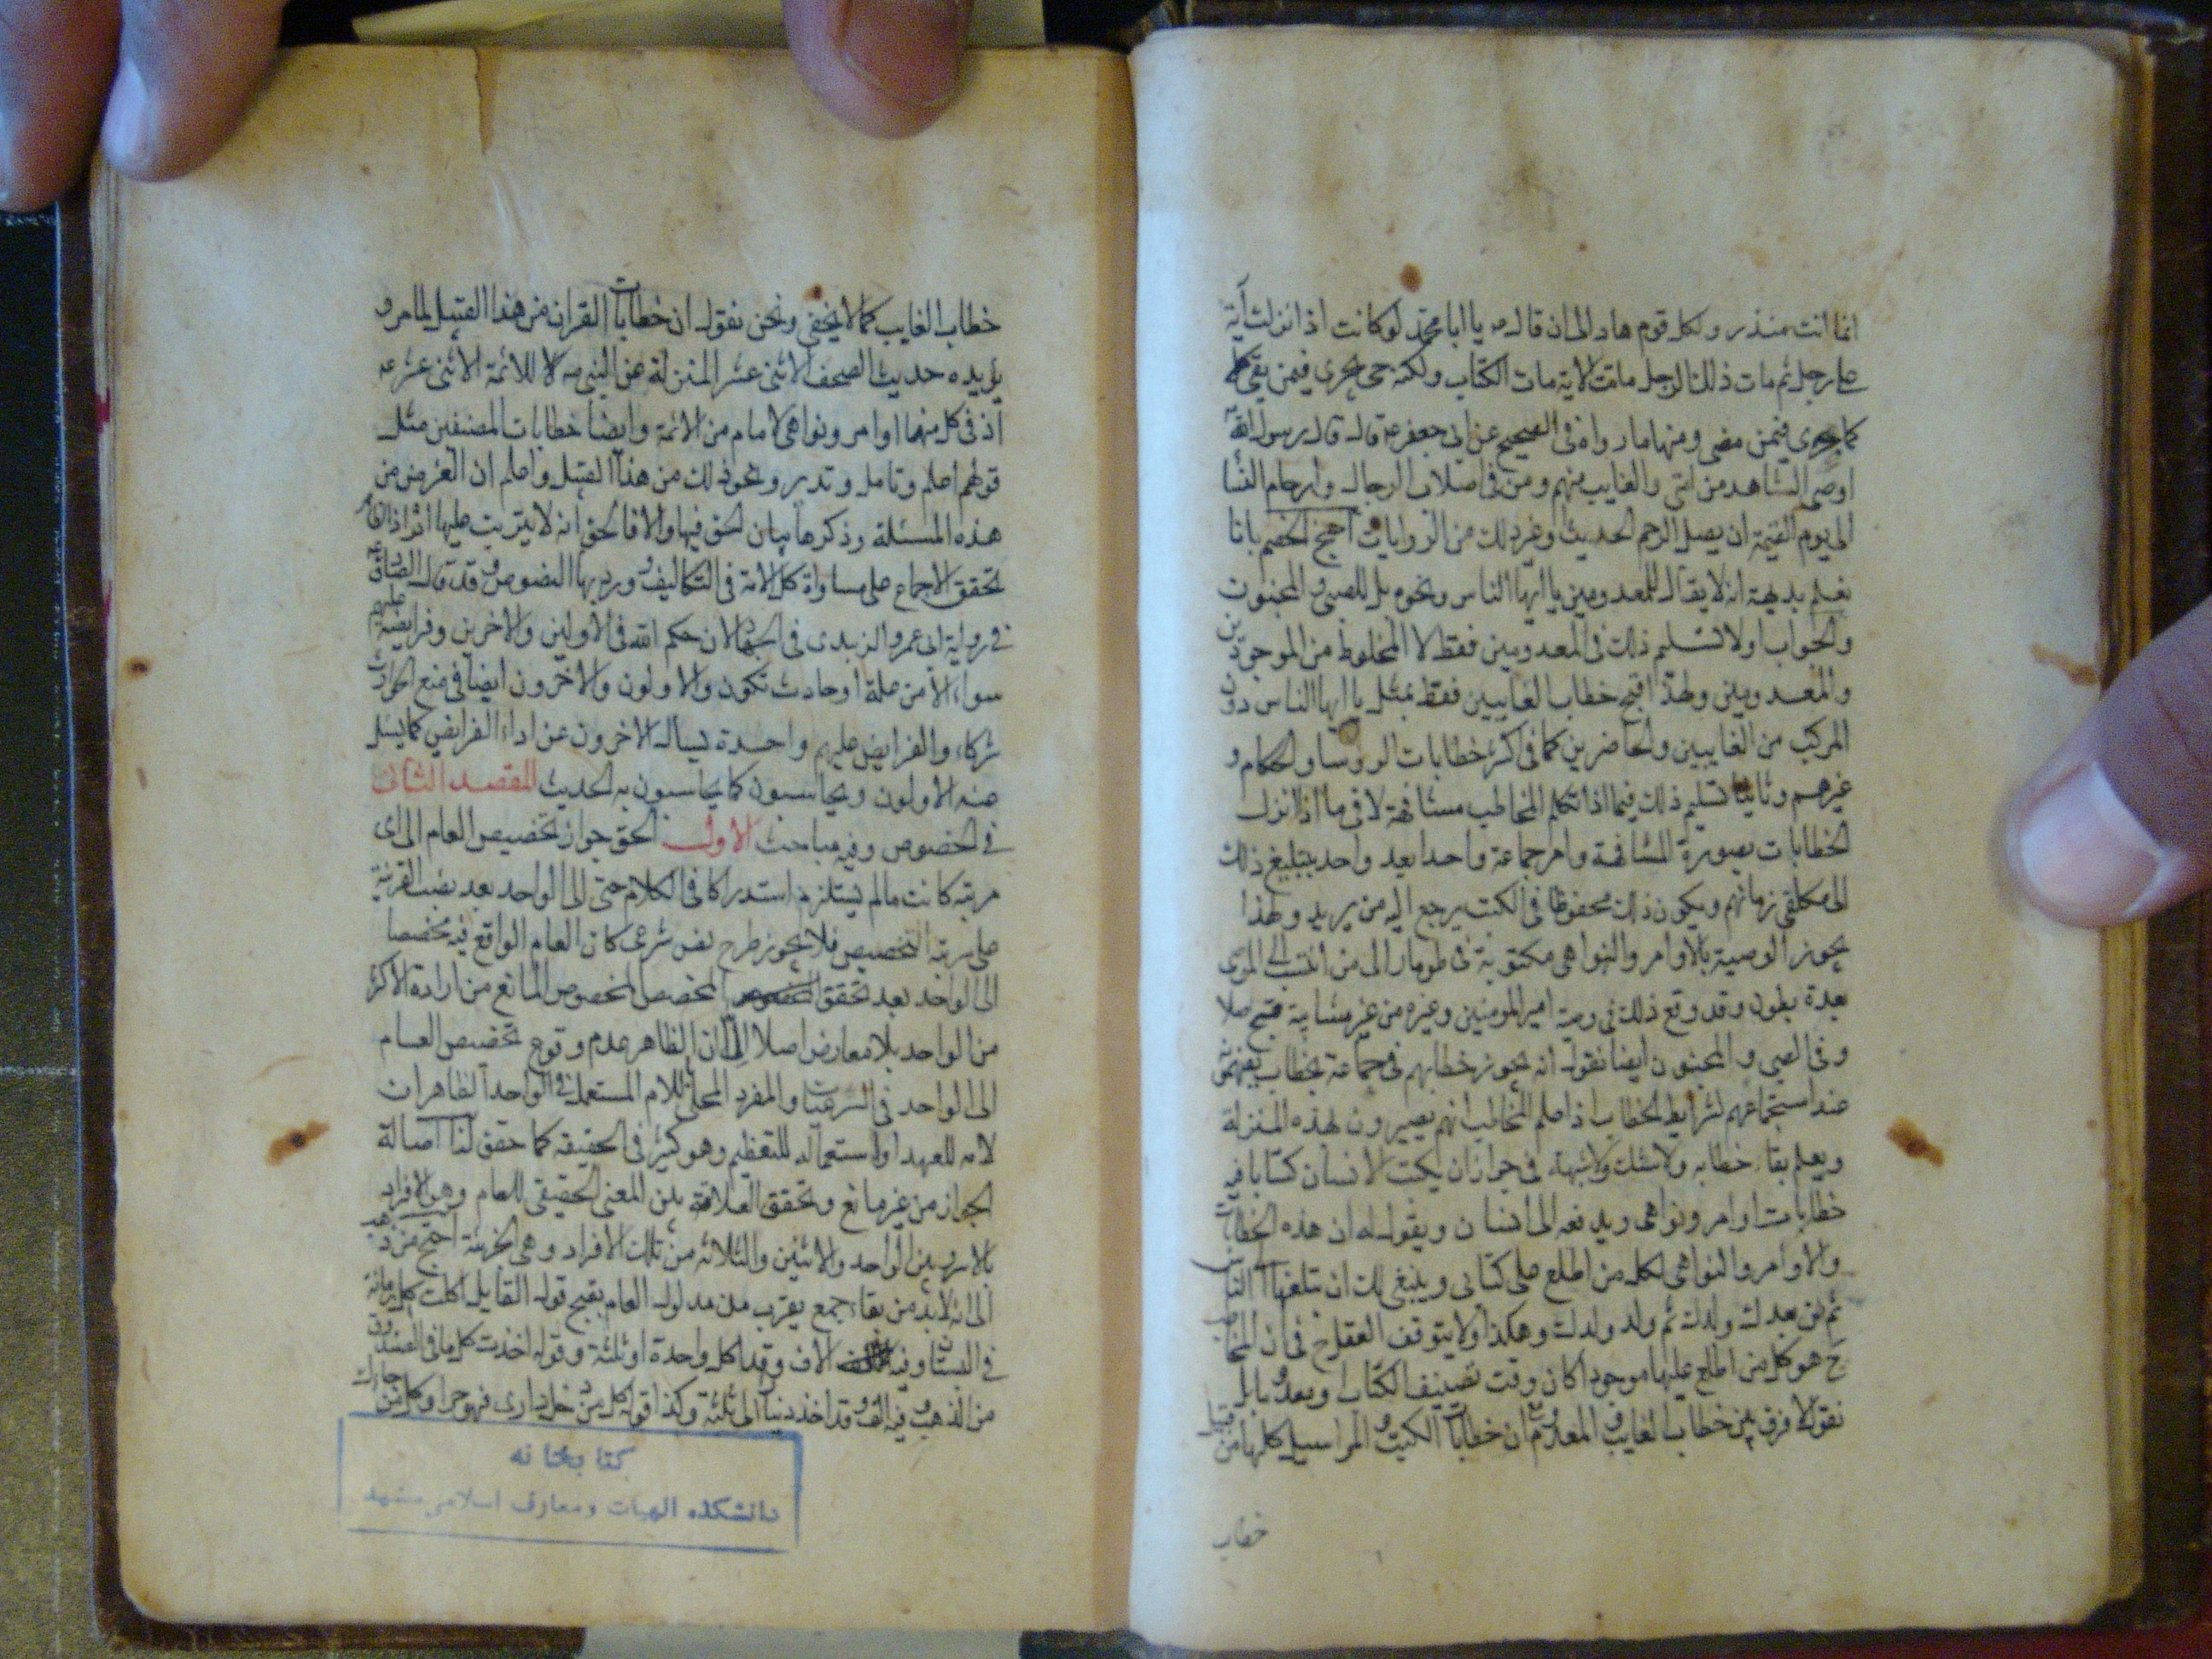 انما انت منذر ولكل قوم هاد الى ان قال ص يا ابا محمد لو كانت اذا نزلت آية
على رجل ثم مات ذلك الرجل ماتت الآية مات الكتاب ولكنه حى يجرى فيمن بقى
كما جرى فيمن مضى ومنها ما رواه فى الصحيح عن ابى جعفر ع قال قال رسول الله
اوصى الشاهد من امتى والغايب منهم ومن فى اصلاب الرجال وارحام النسا
الى يوم القيمة ان يصل الرحم الحديث وغير ذلك من الروايات احتج الخصم بانا
نعلم بديهة انه لا يقال للمعدومين يا ايها الناس ونحوه بل للصبى والمجنون
والجواب اولا تسليم ذلك فى المعدومين فقط لا المخلوط من الموجودين
والمعدومين ولهذا قبح خطاب الغايبين فقط بمثل يا ايها الناس دون
المركب من الغايبين والحاضرين كما فى اكثر خطابات الروسا والحكام و
غيرهم وثانيا تسليم ذلك فيما اذا تكلم المخاطب مشافهة لا فى ما اذا نزل
الخطابات بصورة المشافهة وامر جماعة واحدا بعد واحد بتبليغ ذلك
الى مكلفى زمانهم ويكون ذلك محفوظا فى الكتب يرجع اليه من يريد ولهذا
يجوز الوصية بالاوامر والنواهى مكتوبة فى طومار الى من انتسب الى الموصى
بعدة بطون وقد وقع ذلك فى وصية امير المومنين وغيره من غير مشابهة قبح اصلا
وفى الصبى والمجنون ايضا نقول انه يجوز خطابهم فى جماعة بخطاب يفهمونه
عند استجماعهم لشرايط الخطاب اذا علم المخاطب انهم يصيرون بهذه المنزلة
ويعلم بقاء خطابه ولا شك ولا شبهة فى جواز ان يكتب الانسان كتابا فيه
خطابات اوامر ونواهى ويدفعه الى انسان ويقول له ان هذه الخطابات
والاوامر والنواهى لكل من اطلع على كتابى وينبغى لك ان تبلغها الناس
ثم لمن بعدك ولدك ثم ولد ولدك وهكذا ولا يتوقف العقل ح فى ان المخاطب
ح هو كل من اطلع عليها موجودا كان وقت تصنيف الكتاب او معدوما بل
نقول لا فرق بين خطاب الغايب والمعدوم وان خطابات الكتب والمراسيل كلها من قبيل
خطاب
خطاب الغايب كما لا يخفى ونحن نقول ان خطابات القران من هذا القبيل لما مر و
يؤيده حديث الصحف الاثنى عشر المنزلة على النبى ص للائمة الاثنى عشر ع
اذ فى كل منها اوامر ونواهى لامام من الائمة وايضا خطابات المصنفين مثل
قولهم اعلم وتامل وتدبر ونحو ذلك من هذا القبيل واعلم ان الغرض من
هذه المسئلة وذكرها بيان الحق فيها والا فالحق انه لا يترتب عليها اثر اذ الظاهر
تحقق الاجماع على مساواة كل الامة فى التكاليف وورد بها النصوص وقد قال الصادق ع
فى رواية ابى عمرو الزبيدى فى الجهاد لان حكم الله فى الاولين والاخرين وفرايضه عليهم
سواء الا من علة او حادث تكون والاولون والاخرون ايضا فى منع الحوادث
شركاء والفرايض عليهم واحدة يسال الاخرون عن اداء الفرايض كما يسئل
عنه الاولون ويحاسبون كما يحاسبون به الحديث المقصد الثانى
فى الخصوص وفيه مباحث الاول الحق جواز تخصيص العام الى اى
مرتبة كانت ما لم يستلزم استدراكا فى الكلام حتى الى الواحد بعد نصب القرينة
على مرتبة التخصيص فلا يجوز طرح نص شرعى كان العام الواقع فيه مخصصا
الى الواحد بعد تحقق المخصص المخصوص المانع من ارادة الاكثر
من الواحد بلا معارض اصلا الا ان الظاهر عدم وقوع تخصيص العام
الى الواحد فى الشرعيات والمفرد المحلى باللام المستعمل فى الواحد الظاهر ان
لامه للعهد او استعماله للتعظيم وهو كثير فى الحقيقة كما حقق لنا اصالة
الجواز من غير مانع وتحقق العلاقة بين المعنى الحقيقى للعام وهى الافراد
بالاسر وبين الواحد والاثنين والثلاثة من تلك الافراد وهى الجزئية احتج من ذهب
الى انه لا بد من بقاء جمع يقرب من مدلول العام بقبح قول القايل اكلت كل رمانة
فى البستان وفيه الاف وقد اكل واحدة او ثلثة وقوله اخذت كل ما فى الصندوق
من الذهب وفيه الف وقد اخذ دينارا الى ثلثة وكذا قوله كل من دخل دارى فهو حر او كل من جاءك
كتابخانه
دانشكده الهيات ومعارف اسلامى مشهد